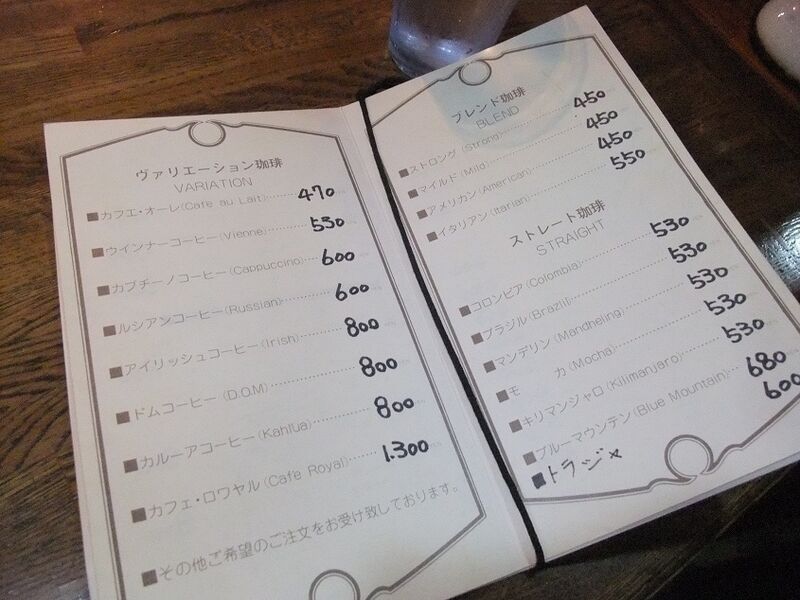 ヴァリエーション珈琲
VARIATION
■カフェ・オーレ(Cafe au Lait)............470
■ウインナーコーヒー(Vienne)............530
■カプチーノコーヒー(Cappuccino)............600
■ルシアンコーヒー(Russian)............600
■アイリッシュコーヒー(Irish)............800
■ドムコーヒー(D.O.M)............800
■カルーアコーヒー(Kahlua)............800
■カフェ・ロワヤル(Cafe Royal)............1.300
■その他ご希望のご注文をお受け致しております。
ブレンド珈琲
BLEND
■ストロング(Strong)............450
■マイルド(Mild)............450
■アメリカン(American)............450
■イタリアン(Itarian)............550
ストレート珈琲
STRAIGHT
■コロンビア(Colombia)............530
■ブラジル(Brazil)............530
■マンデリン(Mandheling)............530
■モ カ(Mocha)............530
■キリマンジャロ(Kilimanjaro)............530
■ブルーマウンテン(Blue Mountain)............680
■トラジャ 600